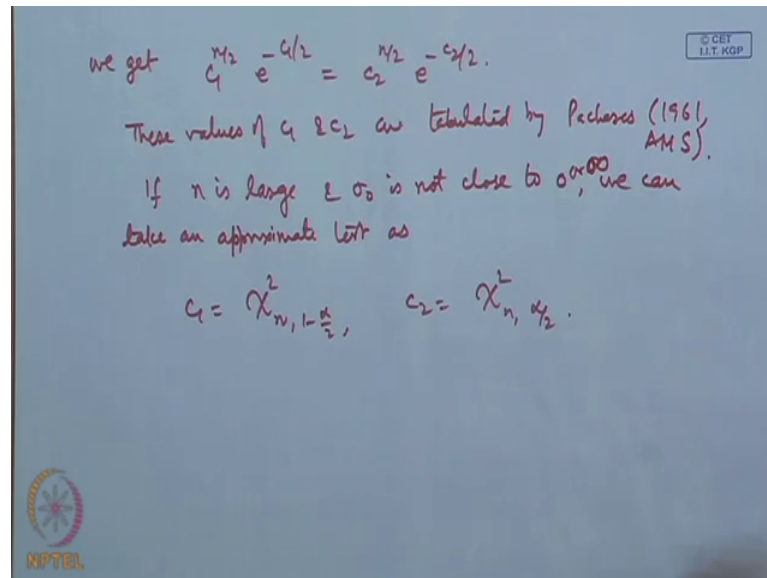 we get c₁^{n/2} e^{-c₁/2} = c₂^{n/2} e^{-c₂/2}.
© CET
I.I.T. KGP
These values of c₁ & c₂ are tabulated by Pachares (1961,
AMS).
If n is large & σ₀ is not close to 0 or ∞, we can
take an approximate test as
c₁ = χ²_{n, 1-α/2}, c₂ = χ²_{n, α/2}.
NPTEL